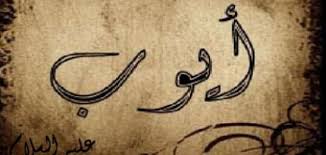 أيوب
عليه السلام